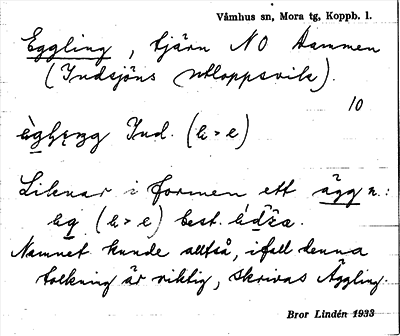 Våmhus sn, Mora tg, Koppb. l.
Eggling, tjärn NO Dammen
(Indsjöns utloppsvik).
10
Ind. (a > e)
Liknar i formen ett ägg n.:
(a > e) best.
Namnet kunde alltså, ifall denna
tolkning är riktig, skrivas Äggling.
Bror Lindén 1933